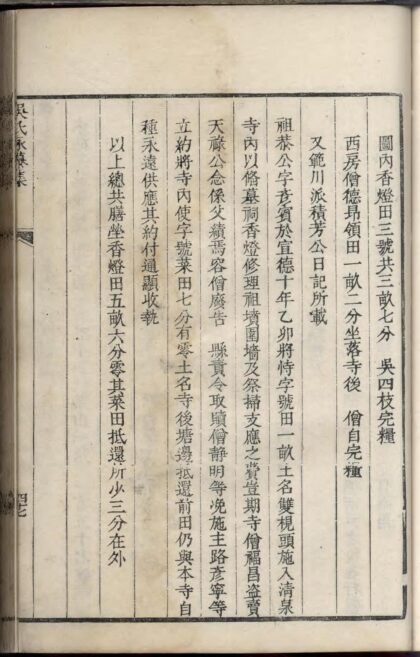 圖內香燈田三號共三畝七分　吳四枝完糧
西房僧德昂領田一畝二分坐落寺後　僧自完糧
又範川派積芳公日記所載
祖恭公字彥賓於宣德十年乙卯將恃字號田一畝土名雙梘頭施入清泉
寺內以俻墓祠香燈修理祖墳圍墻及祭掃支應之費豈期寺僧福昌盜賣
天祿公念係父績焉容僧廢告　縣責令取贖僧靜明等凂施主路彥寧等
立約將寺內使字號菜田七分有零土名寺後塘邊抵還前田仍與本寺自
種永遠供應其約付通顯收執
以上總共勝坐香燈田五畝六分零其菜田抵還所少三分在外
吳氏永集
四七